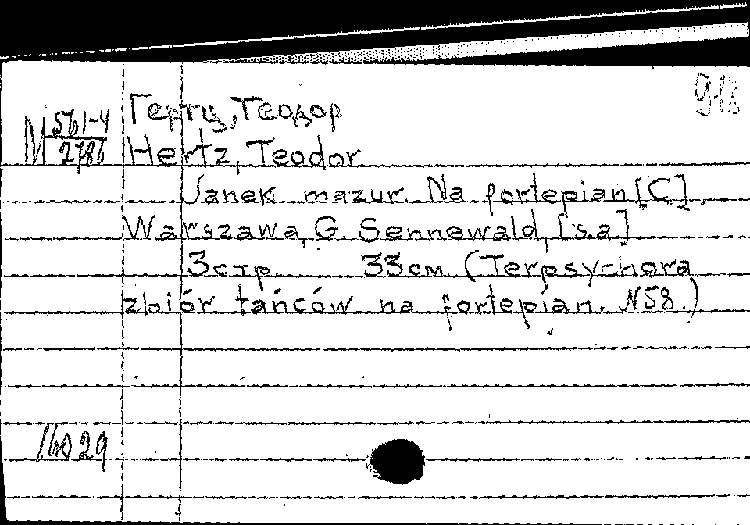 918
Герц, Теодор
М 561-4/2786
Hertz, Teodor
Janek mazur. Na fortepian [C].
Warszawa, G. Sennewald, [s.a]
3 стр 33 см (Terpsychora
zbiór tańców na fortepian. N58.)
29